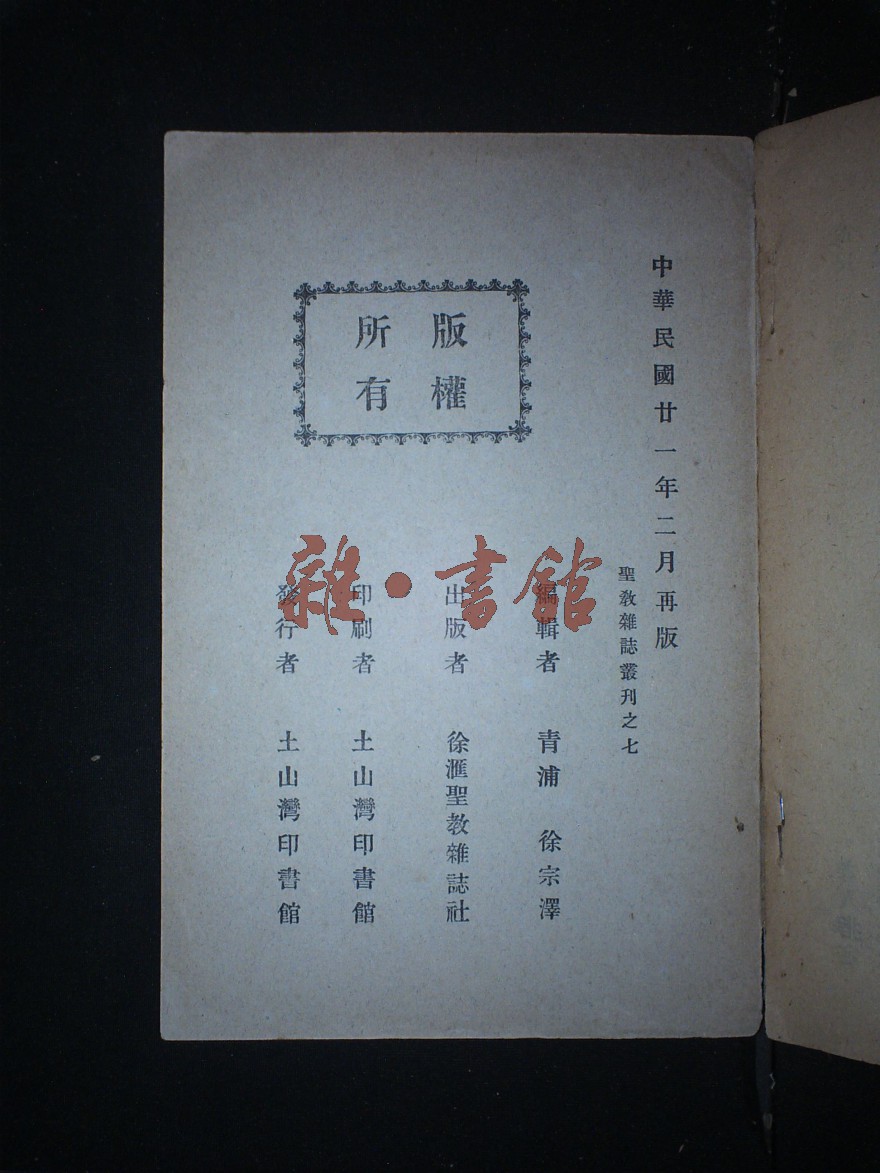 中華民國廿一年二月再版
聖教雜誌叢刊之七
版權
所有
編輯者 青浦 徐宗澤
出版者 徐滙聖教雜誌社
印刷者 土山灣印書館
發行者 土山灣印書館
雜·書館